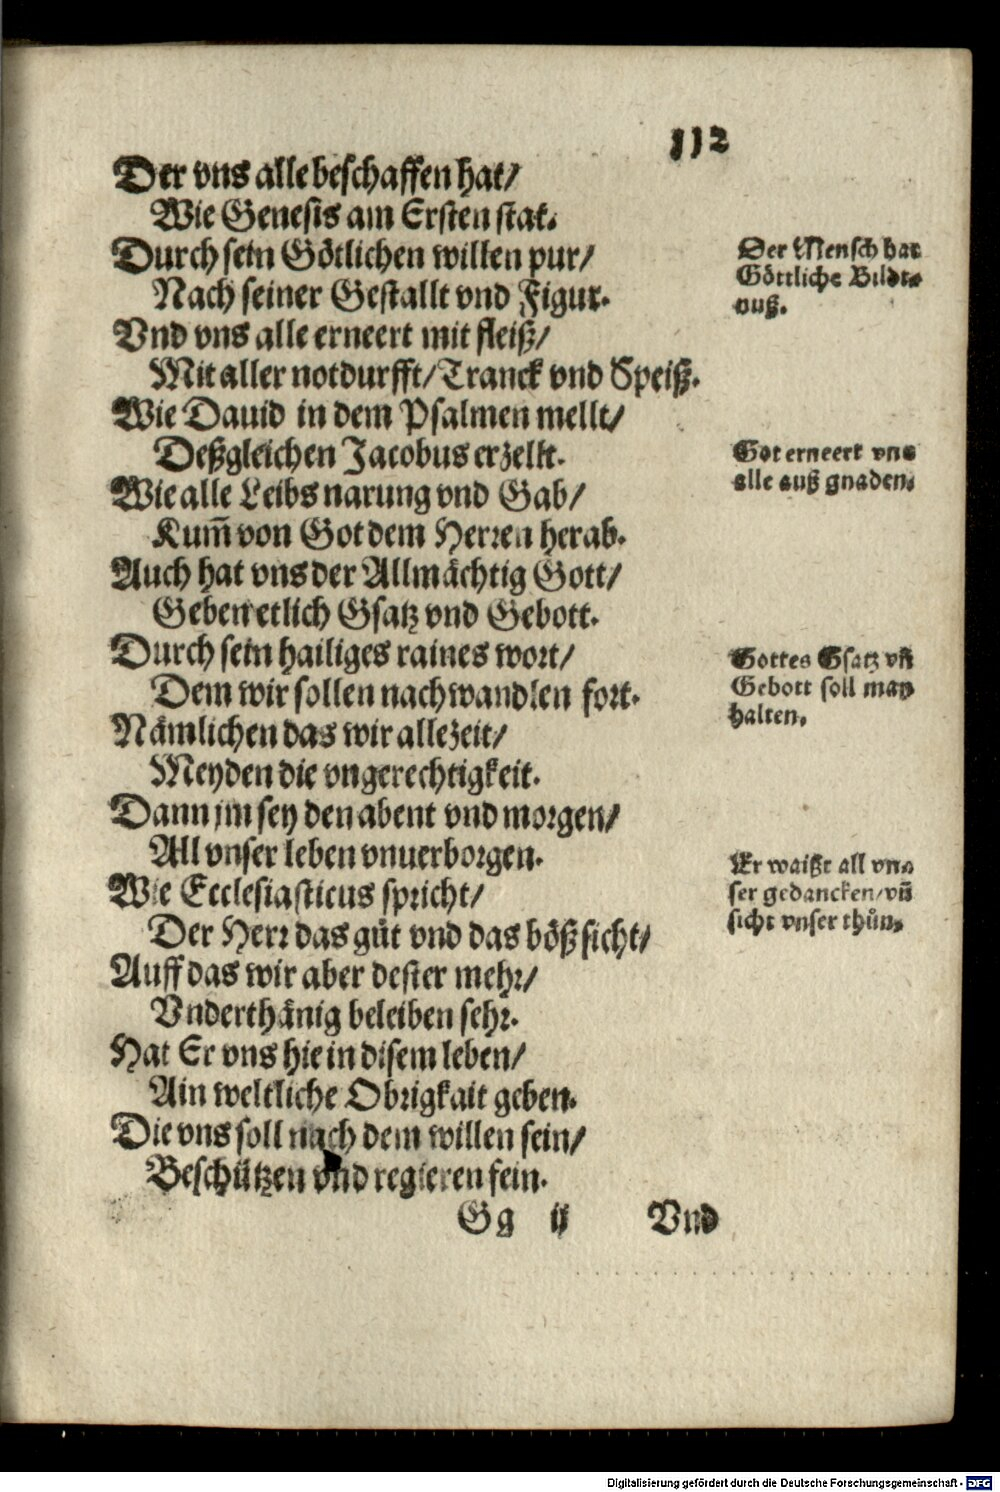 112
Der vns alle beschaffen hat/
Wie Genesis am Ersten stat.
Durch sein Götlichen willen pur/
Nach seiner Gestallt vnd Figur.
Vnd vns alle erneert mit fleiß/
Mit aller notdurfft/Tranck vnd Speiß.
Wie Dauid in dem Psalmen mellt/
Deßgleichen Jacobus erzellt.
Wie alle Leibs narung vnd Gab/
Kum̃ von Got dem Herren herab.
Auch hat vns der Allmächtig Gott/
Geben etlich Gsatz vnd Gebott.
Durch sein hailiges raines wort/
Dem wir sollen nachwandlen fort.
Nämlichen das wir allezeit/
Meyden die vngerechtigkeit.
Dann jm sey den abent vnd morgen/
All vnser leben vnuerborgen.
Wie Ecclesiasticus spricht/
Der Herr das gůt vnd das böß sicht/
Auff das wir aber dester mehr/
Vnderthänig beleiben sehr.
Hat Er vns hie in disem leben/
Ain weltliche Obrigkait geben.
Die vns soll nach dem willen sein/
Beschützen vnd regieren fein.
Gg ij Vnd
Der Mensch hat
Göttliche Bildt-
nuß.
Got erneert vns
alle auß gnaden.
Gottes Gsatz vñ
Gebott soll man
halten.
Er waißt all vn-
ser gedancken/vñ
sicht vnser thůn.
Digitalisierung gefördert durch die Deutsche Forschungsgemeinschaft - DFG